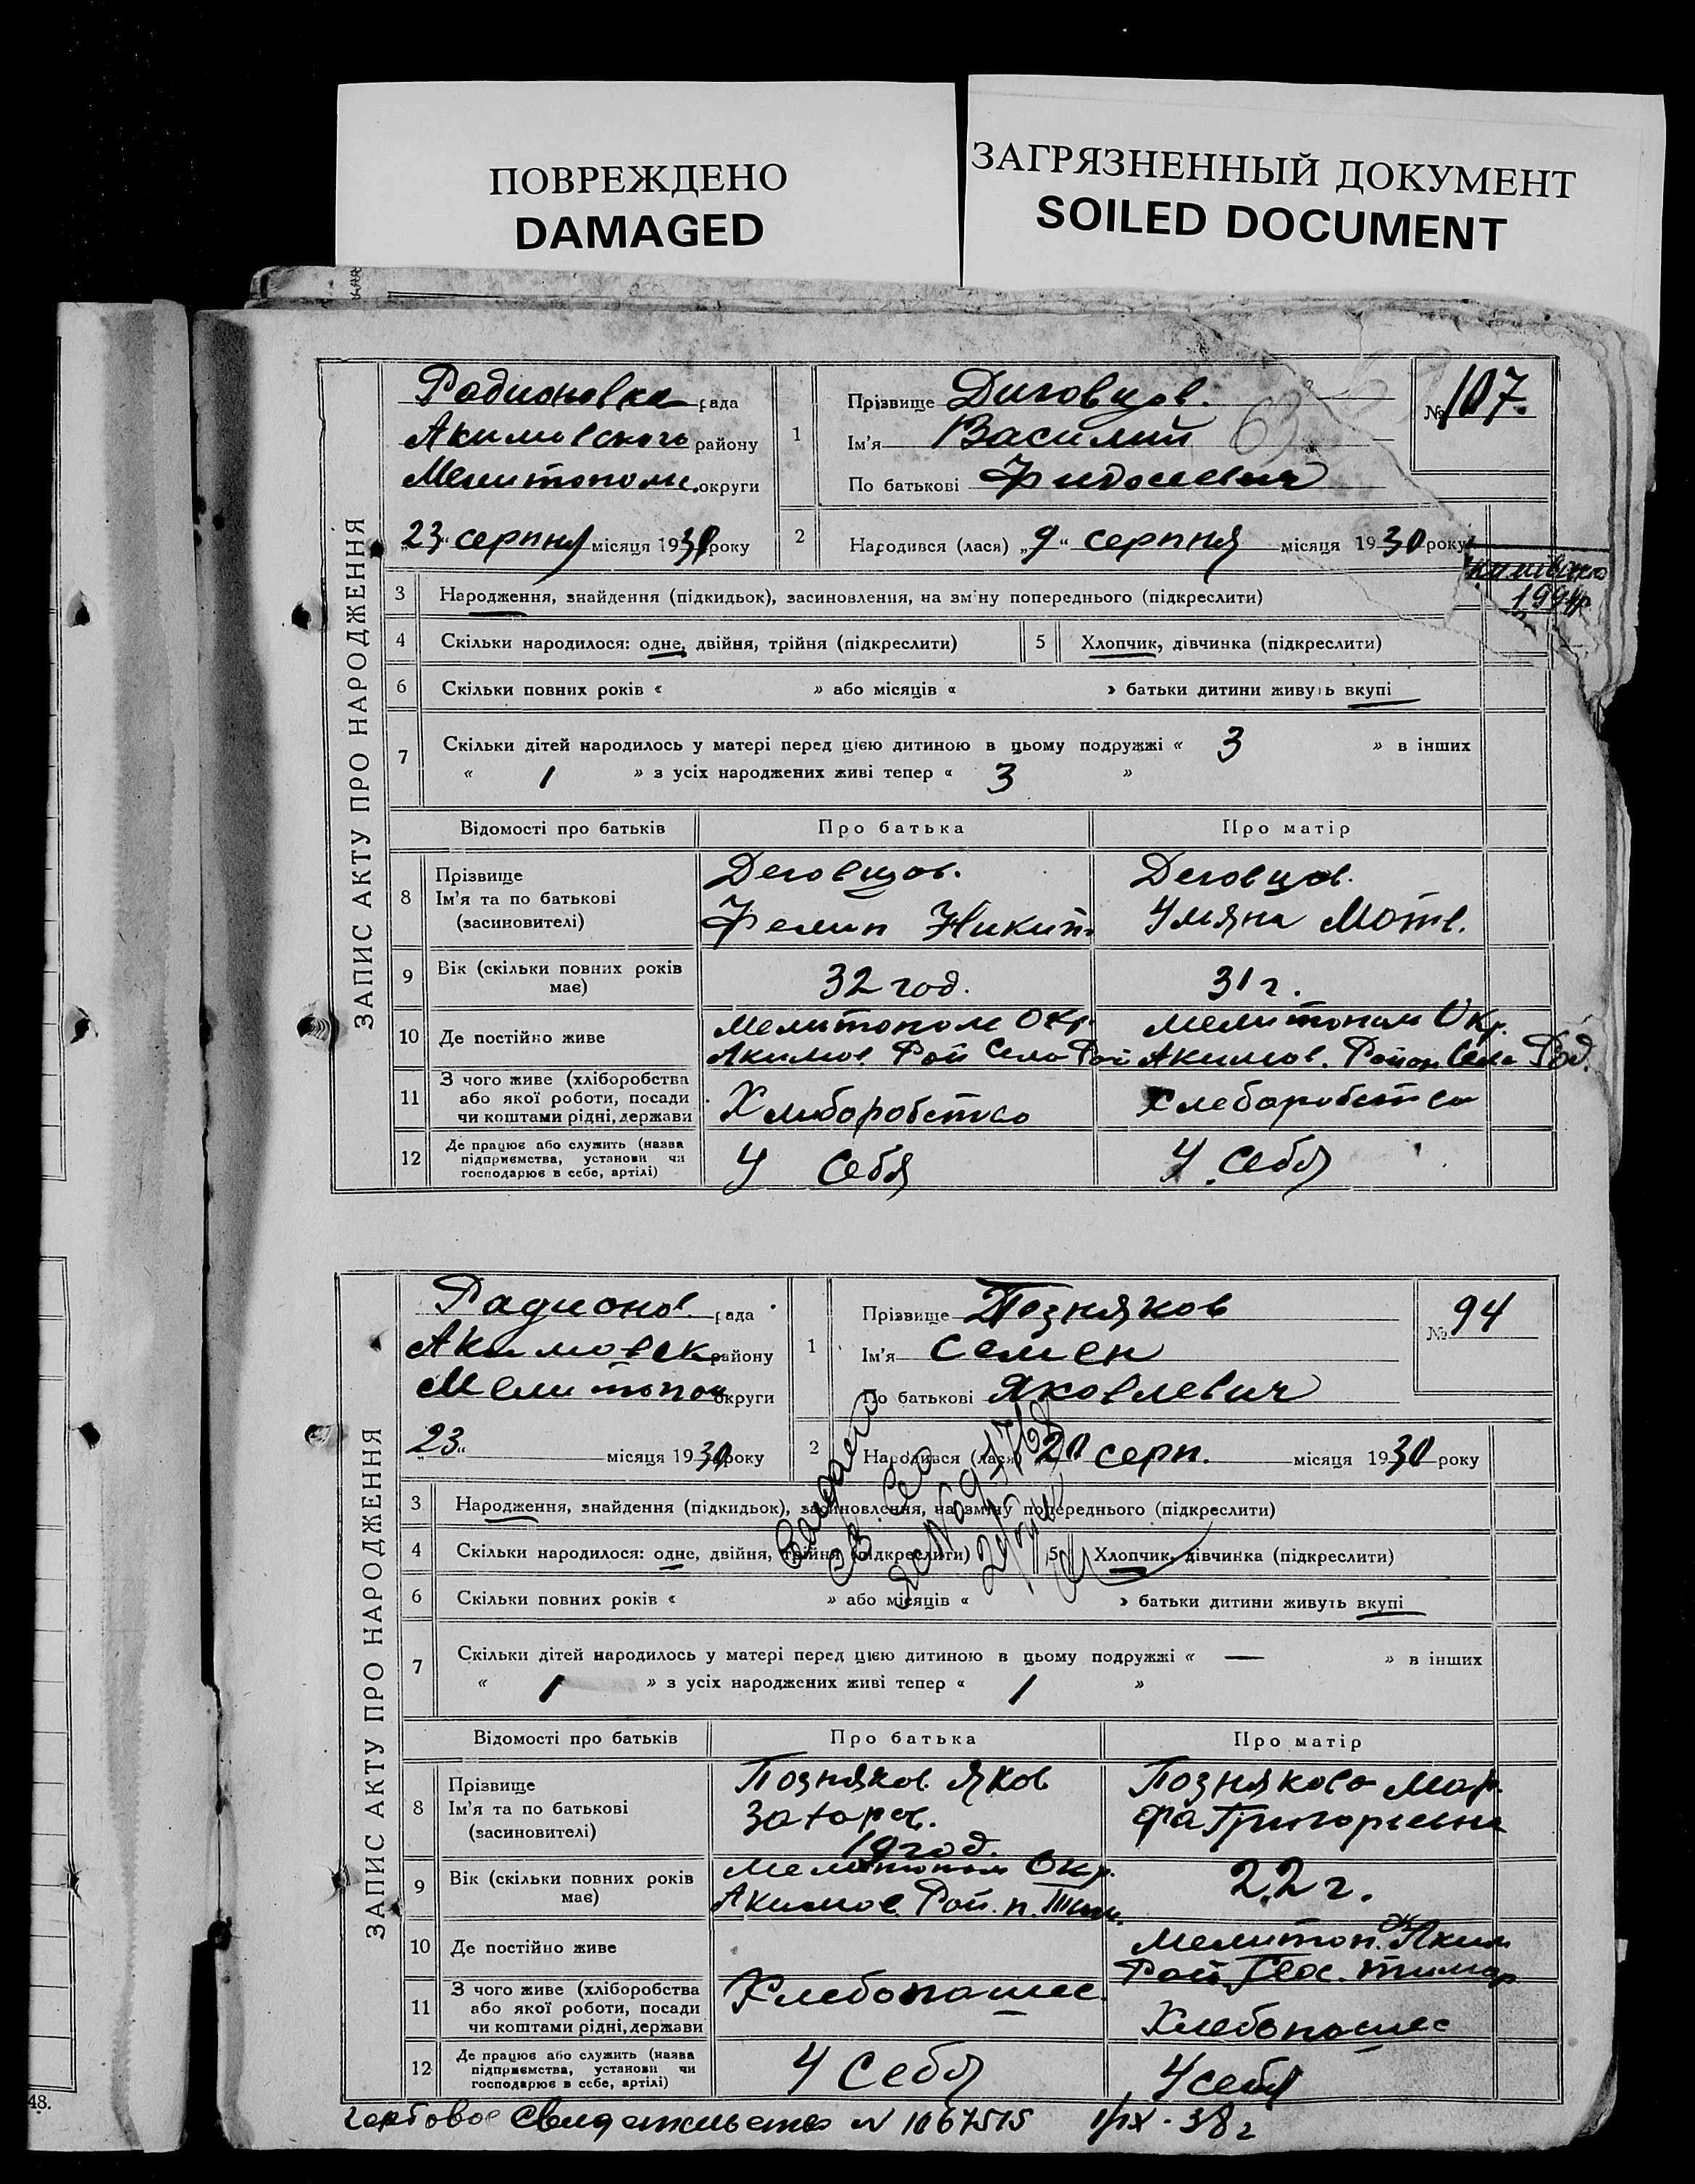 ПОВРЕЖДЕНО
DAMAGED
ЗАГРЯЗНЕННЫЙ ДОКУМЕНТ
SOILED DOCUMENT
ЗАПИС АКТУ ПРО НАРОДЖЕННЯ
Родионовка рада
Акимовского району
Мелитополь. округи
„23“ серпня місяця 1930 року
1 Прізвище Диговцов.
Ім'я Василий
По батькові
63
№ 107.
2 Народився (лася) „9“ серпня місяця 1930 року
3 Народження, знайдення (підкидьок), засиновлення, на зміну попереднього (підкреслити)
4 Скільки народилося: одне, двійня, трійня (підкреслити) 5 Хлопчик, дівчинка (підкреслити)
6 Скільки повних років « » або місяців « » батьки дитини живуть вкупі
7 Скільки дітей народилось у матері перед цією дитиною в цьому подружжі « 3 » в інших
« 1 » з усіх народжених живі тепер « 3 »
Відомості про батьків Про батька Про матір
8 Прізвище
Ім'я та по батькові
(засиновителі)
Деговцов.
Фелип Никит.
Деговцов.
Уляна Мотв.
9 Вік (скільки повних років має) 32 год. 31 г.
10 Де постійно живе
Мелитопол Окр.
Акимов. Рай Село Рай
Мелитопол Окр.
Акимов. Район Село Род.
11 З чого живе (хліборобства
або якої роботи, посади
чи коштами рідні, держави
Хлиборобство
Хлеборобство
12 Де працює або служить (назва
підприємства, установи чи
господарює в себе, артілі)
У себя
У себя
ЗАПИС АКТУ ПРО НАРОДЖЕННЯ
Радионов рада
Акимовск району
Мелитопол округи
23“ місяця 1930 року
1 Прізвище Позняков
Ім'я Семен
По батькові Яковлевич
№ 94
2 Народився (лася) 20 серп. місяця 1930 року
Выдано
3 Народження, знайдення (підкидьок), засиновлення, на зміну попереднього (підкреслити)
4 Скільки народилося: одне, двійня, трійня (підкреслити) 5 Хлопчик, дівчинка (підкреслити)
6 Скільки повних років « » або місяців « » батьки дитини живуть вкупі
7 Скільки дітей народилось у матері перед цією дитиною в цьому подружжі « — » в інших
« 1 » з усіх народжених живі тепер « 1 »
Відомості про батьків Про батька Про матір
8 Прізвище
Ім'я та по батькові
(засиновителі)
Позняков Яков
Захаров.
Познякова Мар
фа Григорьевна
9 Вік (скільки повних років має)
19 год.
Мелитопол Окр.
Акимов. Рай. п. Тим.
22 г.
10 Де постійно живе
Мелитоп. Ок. Аким
Рай. Пос. Тимар
11 З чого живе (хліборобства
або якої роботи, посади
чи коштами рідні, держави
Хлебопашес.
Хлебопашес
12 Де працює або служить (назва
підприємства, установи чи
господарює в себе, артілі)
У себя
У себя
гербовое свидетельство N 1067515 1/IX - 38 г
48.